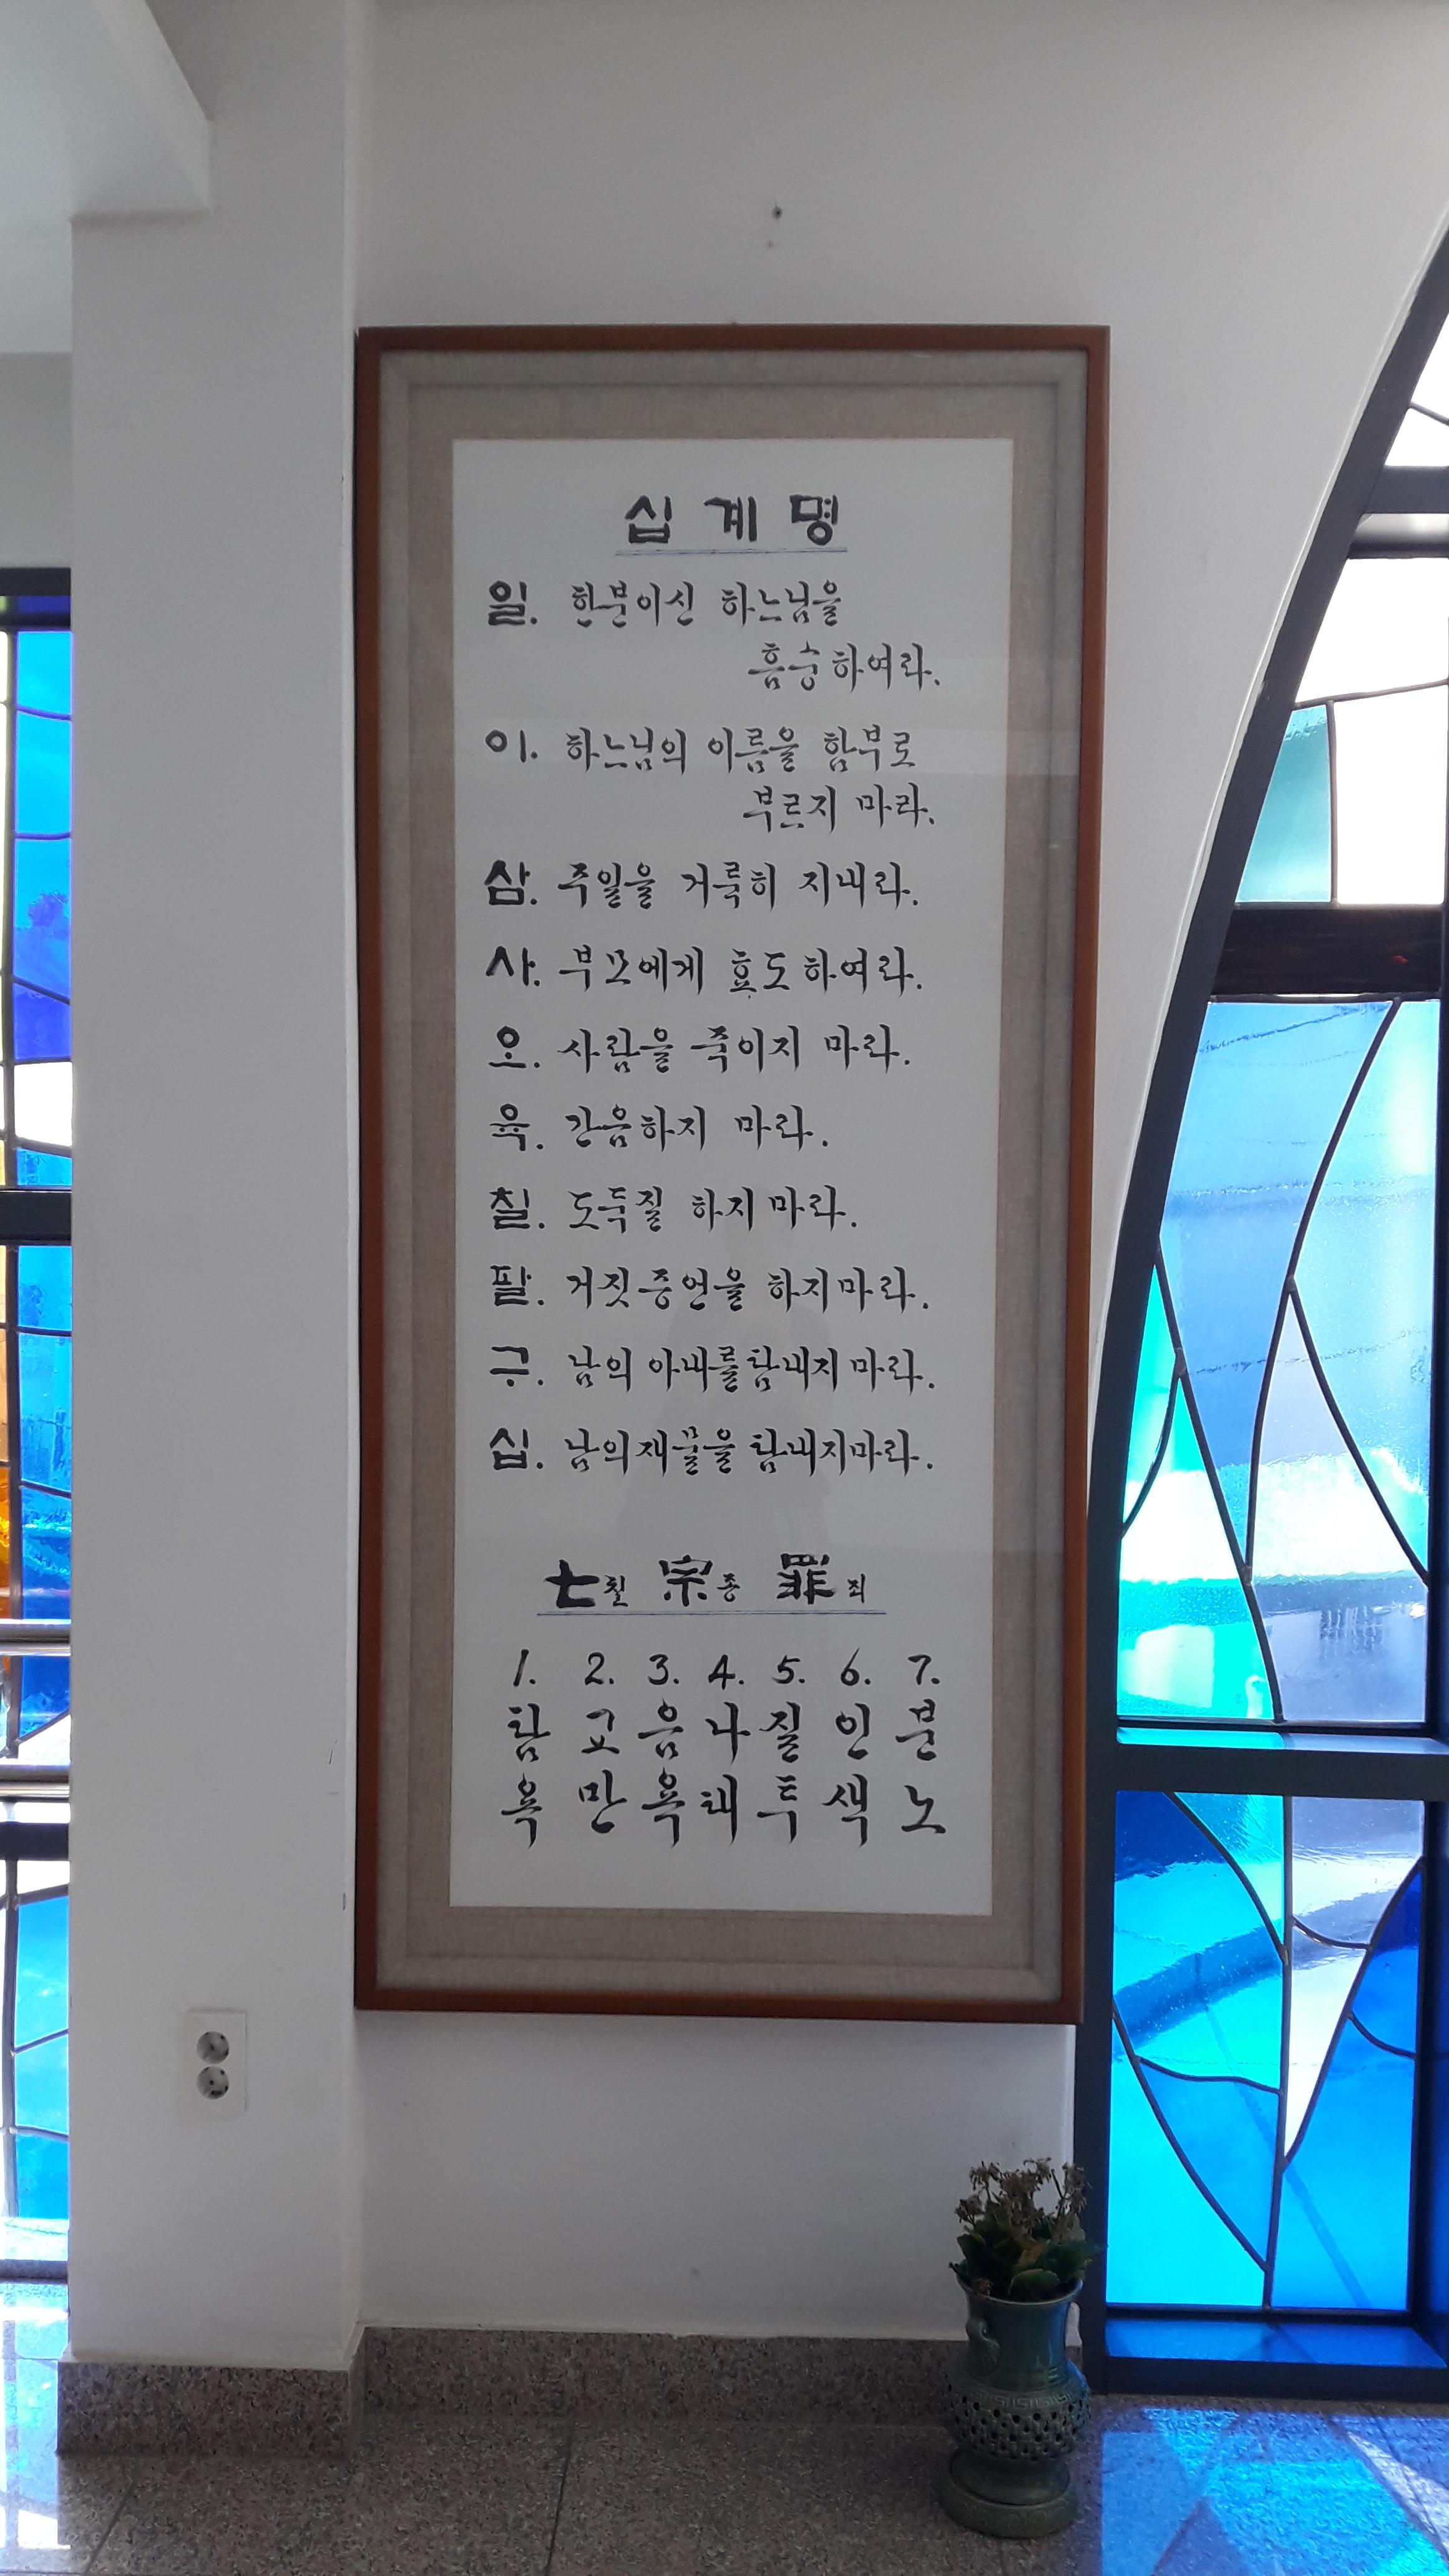 십계명
일. 한분이신 하느님을
흠숭하여라.
이. 하느님의 이름을 함부로
부르지 마라.
삼. 주일을 거룩히 지내라.
사. 부모에게 효도하여라.
오. 사람을 죽이지 마라.
육. 간음하지 마라.
칠. 도둑질 하지마라.
팔. 거짓증언을 하지마라.
구. 남의 아내를탐내지마라.
십. 남의재물을 탐내지마라.
七칠 宗종 罪죄
1. 탐욕
2. 교만
3. 음욕
4. 나태
5. 질투
6. 인색
7. 분노